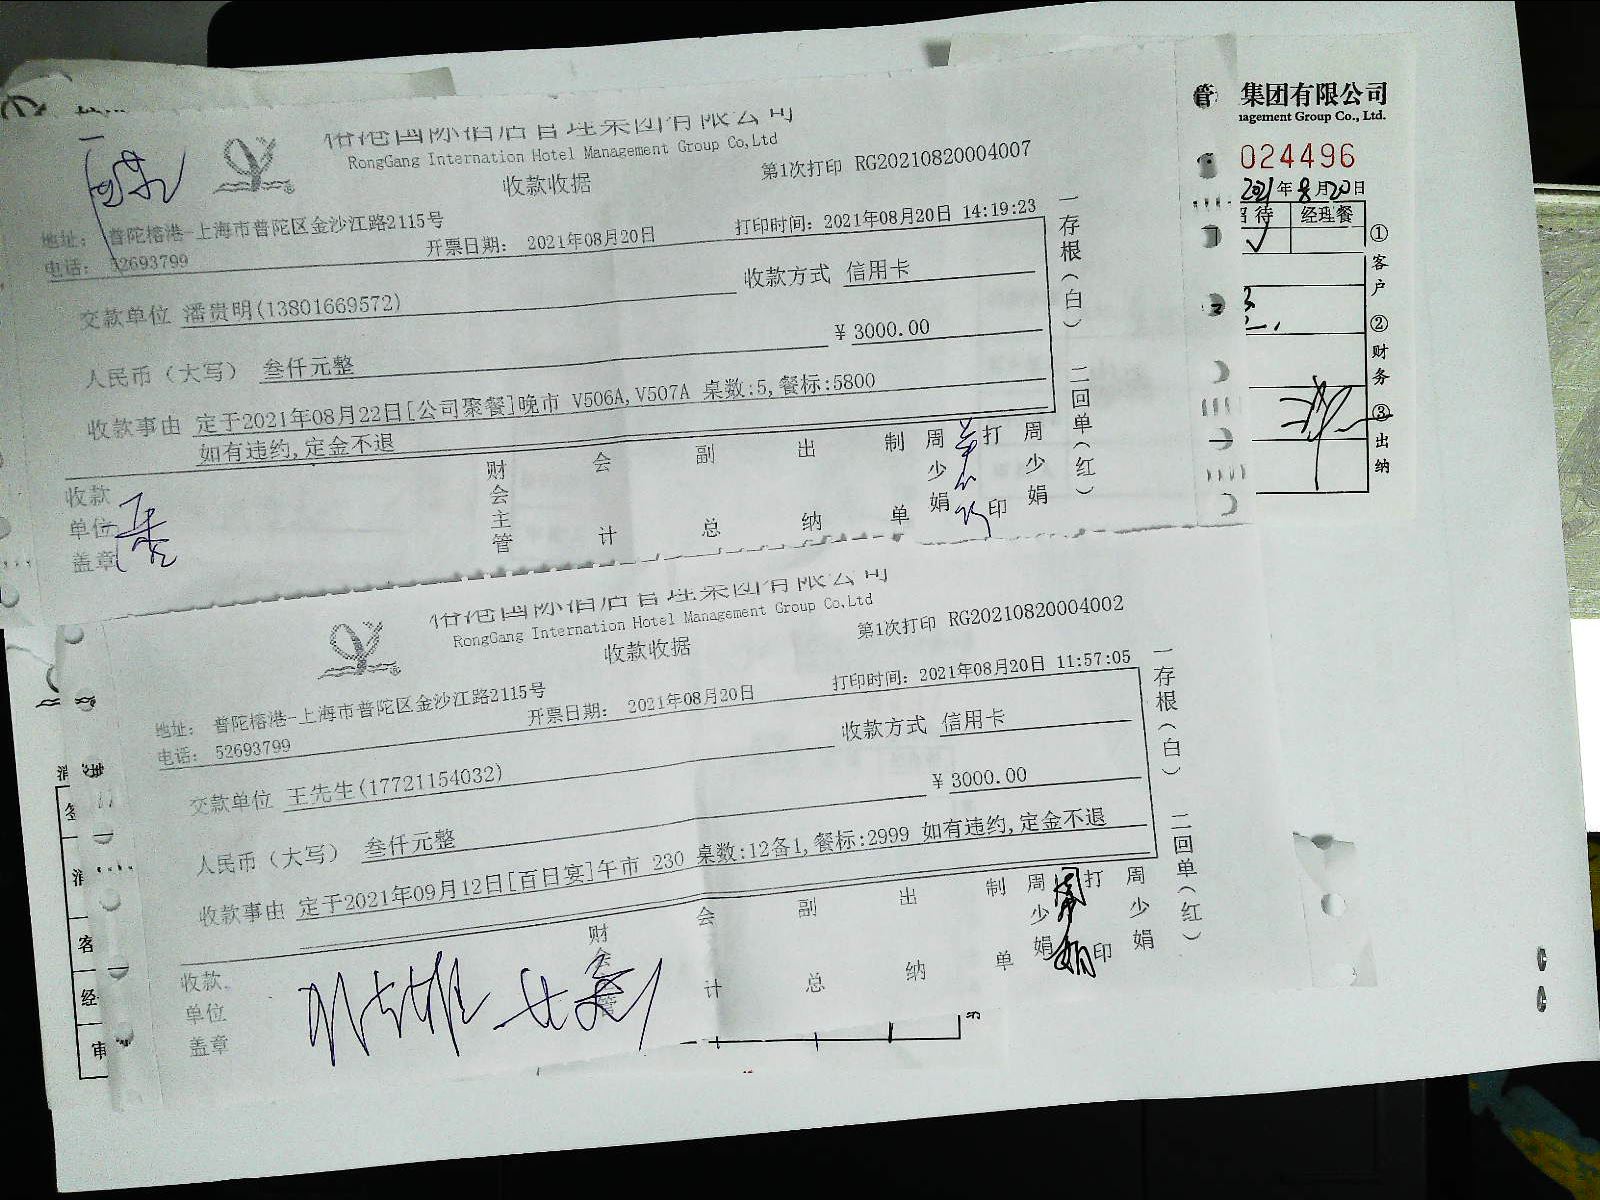 榕港国际酒店管理集团有限公司
RongGang Internation Hotel Management Group Co,Ltd
收款收据
第1次打印 RG20210820004007
地址： 普陀榕港-上海市普陀区金沙江路2115号
电话： 52693799
开票日期： 2021年08月20日
打印时间：2021年08月20日 14:19:23
交款单位 潘贵明(13801669572)
收款方式 信用卡
人民币（大写） 叁仟元整
￥3000.00
收款事由 定于2021年08月22日[公司聚餐]晚市 V506A,V507A 桌数:5,餐标:5800
如有违约,定金不退
收款单位盖章
财会主管
会计
副总
出纳
制单
周少娟
打印
周少娟
一存根（白） 二回单（红）
管 集团有限公司
agement Group Co., Ltd.
024496
2021年8月20日
招待 经理餐
✓
①客户 ②财务 ③出纳
榕港国际酒店管理集团有限公司
RongGang Internation Hotel Management Group Co,Ltd
收款收据
第1次打印 RG20210820004002
地址： 普陀榕港-上海市普陀区金沙江路2115号
电话： 52693799
开票日期： 2021年08月20日
打印时间：2021年08月20日 11:57:05
交款单位 王先生(17721154032)
收款方式 信用卡
人民币（大写） 叁仟元整
￥3000.00
收款事由 定于2021年09月12日[百日宴]午市 230 桌数:12备1,餐标:2999 如有违约,定金不退
收款单位盖章
财会主管
会计
副总
出纳
制单
周少娟
周少娟
打印
周少娟
一存根（白） 二回单（红）
客
经
审